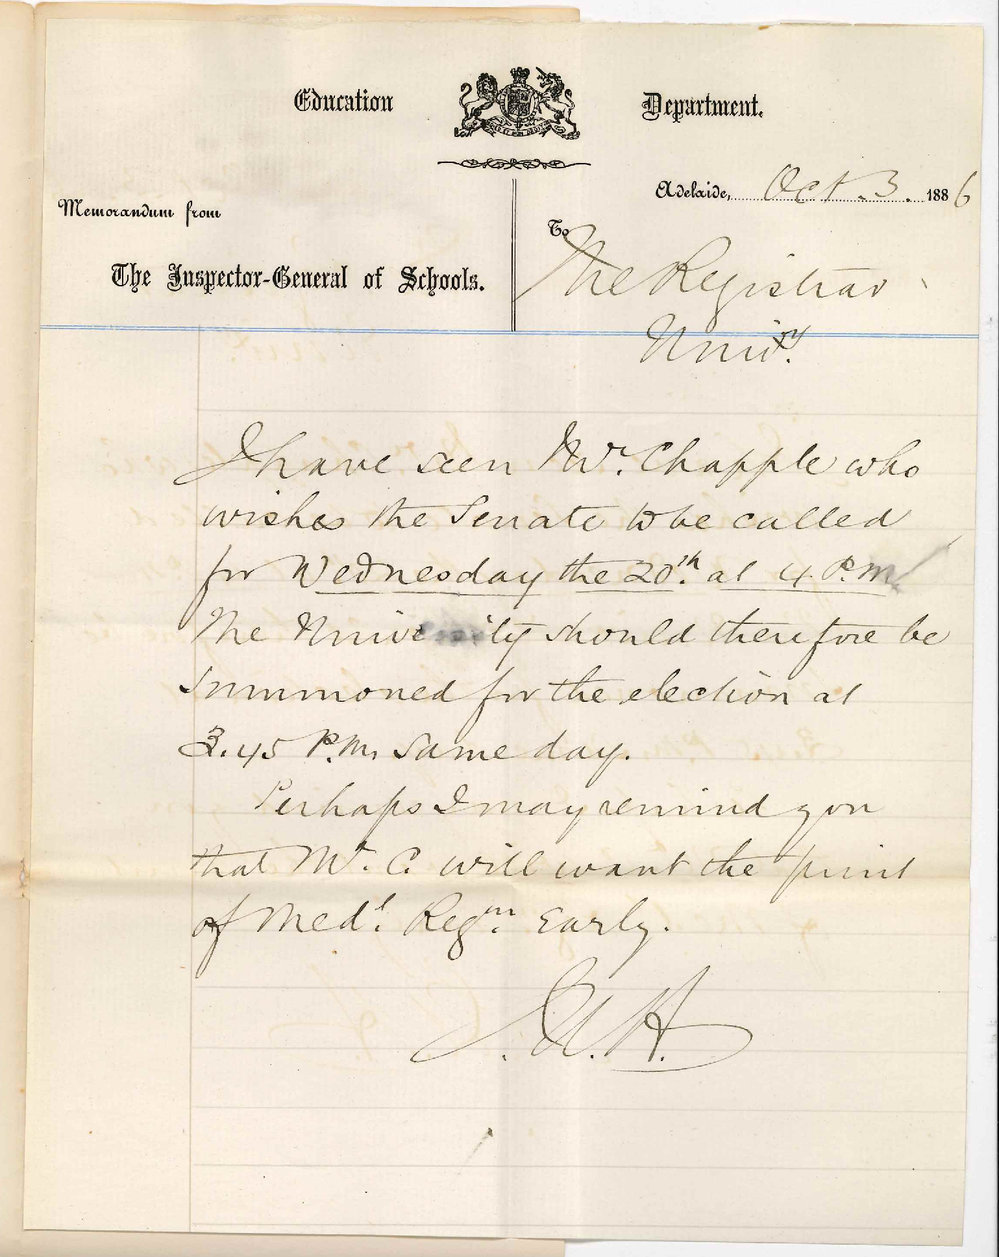 Education Department.
Adelaide, Oct. 3. 1886
Memorandum from
To
The Inspector-General of Schools.
The Registrar
Univ.ty
I have seen Mr. Chapple who
wishes the Senate to be called
for Wednesday the 20th. at 4 P.M.
The University should therefore be
summoned for the election at
3.45 P.M. same day.
Perhaps I may remind you
that Mr. C. will want the print
of Medl. Regns. Early.
J. A. H.